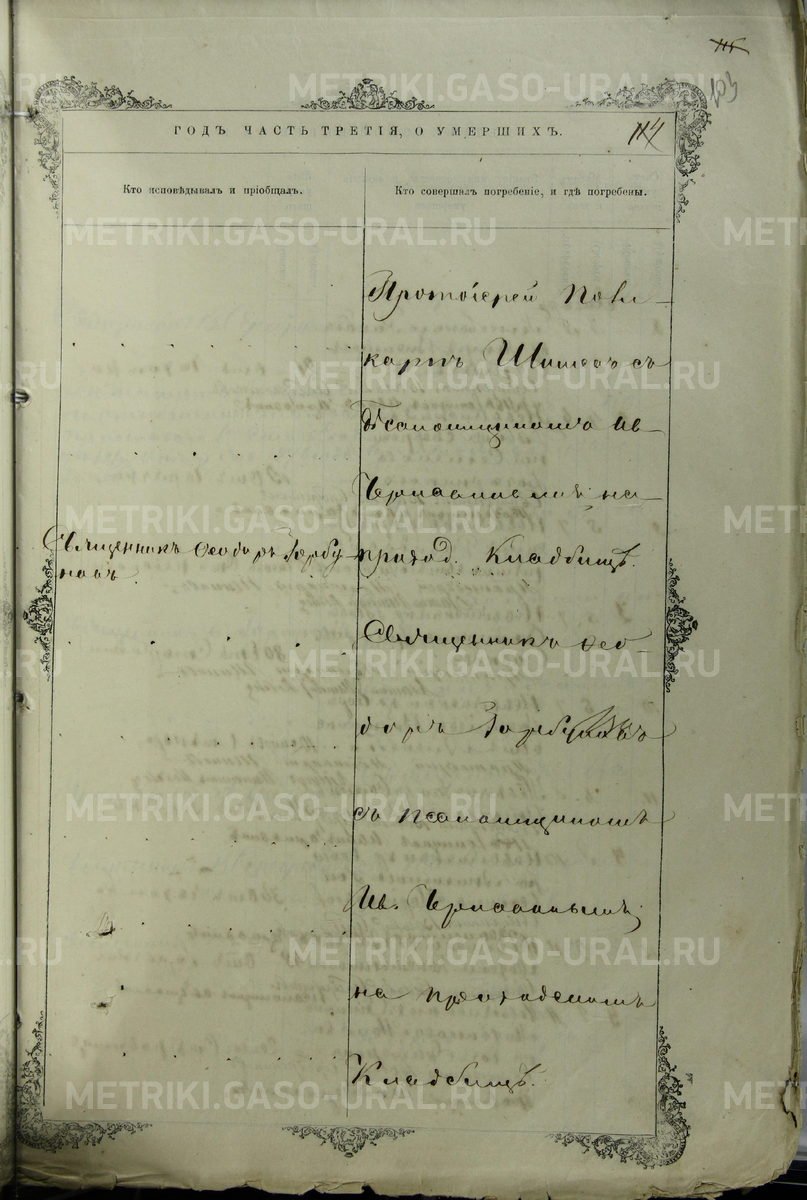 115
103
ГОДЪ ЧАСТЬ ТРЕТІЯ, О УМЕРШИХЪ.
114
Кто исповѣдывалъ и пріобщалъ.
Кто совершалъ погребеніе, и гдѣ погребены.
METRIKI.GASO-URAL.RU
Протоіерей Поли-
карпъ съ
Псаломщикомъ Ив
на
Священникъ Ѳеодоръ Горбу
новъ
приход. Кладбищѣ.
Священникъ Ѳео-
доръ Горбуновъ
съ псаломщикомъ
Ив.
на приходскомъ
Кладбищѣ.